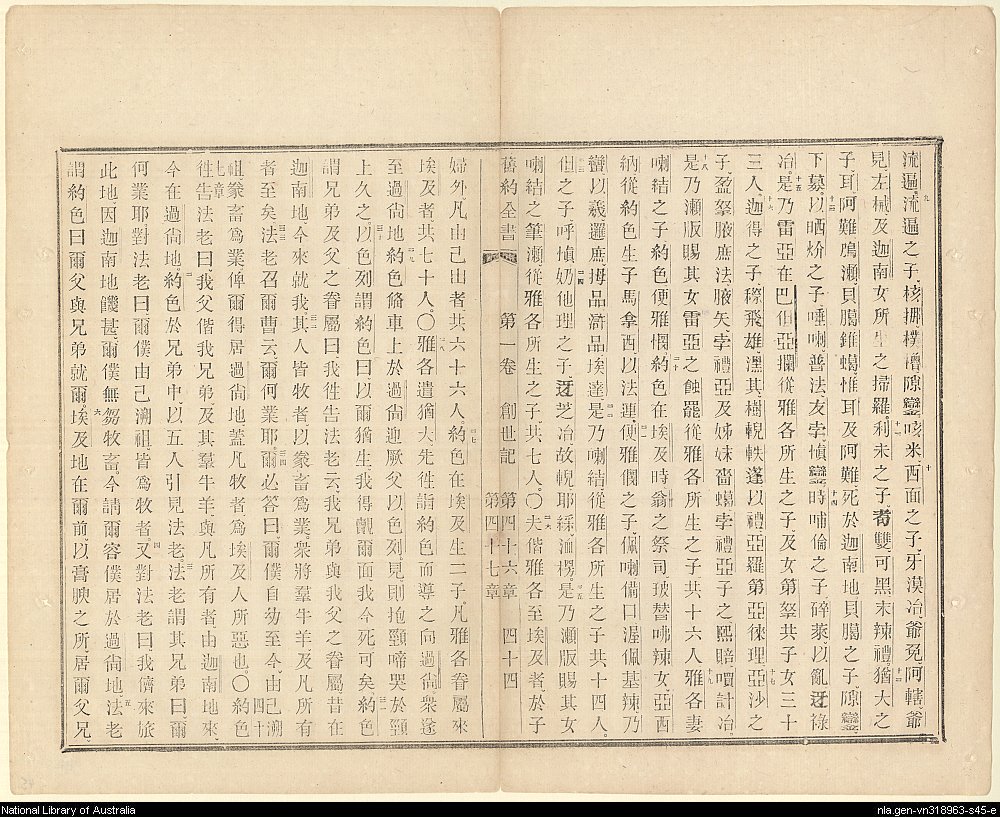 流遍流遍之子核挪樸漕隙蠻咳米西面之子牙漠冶爺免阿轄爺
見左械及迦南女所生之掃羅利未之子雙可黑末辣禮猶大之
子耳阿難鴟瀨貝臈錐蝎惟耳及阿難死於迦南地貝臈之子隙蠻
下暮以晒炌之子唾喇普法友孛愩蠻時哺倫之子碎萊以亂迓祿
冶是乃雷亞在巴但亞攔從雅各所生之子及女第拏共子女三十
三人迦得之子穄飛雄溼其樹輗軼蓬以禮亞羅第亞徠理亞沙之
子盈拏腋庶法腋矢孛禮亞及姊妹嗇蝎孛禮亞子之熙賠嘳計冶
是乃瀨版賜其女雷亞之蝕罷從雅各所生之子共十六人雅各妻
喇結之子約色便雅憪約色在埃及時翁之祭司玻替咈辣女亞西
納從約色生子馬拿西以法連便雅憪之子佩喇備口渥佩基辣乃
蠻以羲邏庶拇品滸品埃達是乃喇結從雅各所生之子共十四人
但之子呼愩奶他理之子迓芝冶故輗耶綵湎楞是乃瀨版賜其女
喇結之筆瀨從雅各所生之子共七人〇夫偕雅各至埃及者於子
舊約全書 第一卷 創世記 第四十六章 第四十七章 四十四
婦外凡由己出者共六十六人約色在埃及生二子凡雅各眷屬來
埃及者共七十人〇雅各遣猶大先徃詣約色而導之向過尙衆遂
至過尙地約色餙車上於過尙迎厥父以色列見則抱頸啼哭於頸
上久之以色列謂約色曰以爾猶生我得覿爾面我今死可矣約色
謂兄弟及父之眷屬曰我徃告法老云我兄弟與我父之眷屬昔在
迦南地今來就我其人皆牧者以豢畜爲業衆將羣牛羊及凡所有
者至矣法老召爾曹云爾何業耶爾必答曰爾僕自幼至今由己溯
祖豢畜爲業俾爾得居過尙地蓋凡牧者爲埃及人所惡也〇約色 四十七章
徃告法老曰我父偕我兄弟及其羣牛羊與凡所有者由迦南地來
今在過尙地約色於兄弟中以五人引見法老法老謂其兄弟曰爾
何業耶對法老曰爾僕由己溯祖皆爲牧者又對法老曰我儕來旅
此地因迦南地饑甚爾僕無芻牧畜今請爾容僕居於過尙地法老
謂約色曰爾父與兄弟就爾埃及地在爾前以膏腴之所居爾父兄
National Library of Australia
nla.gen-vn318963-s45-e